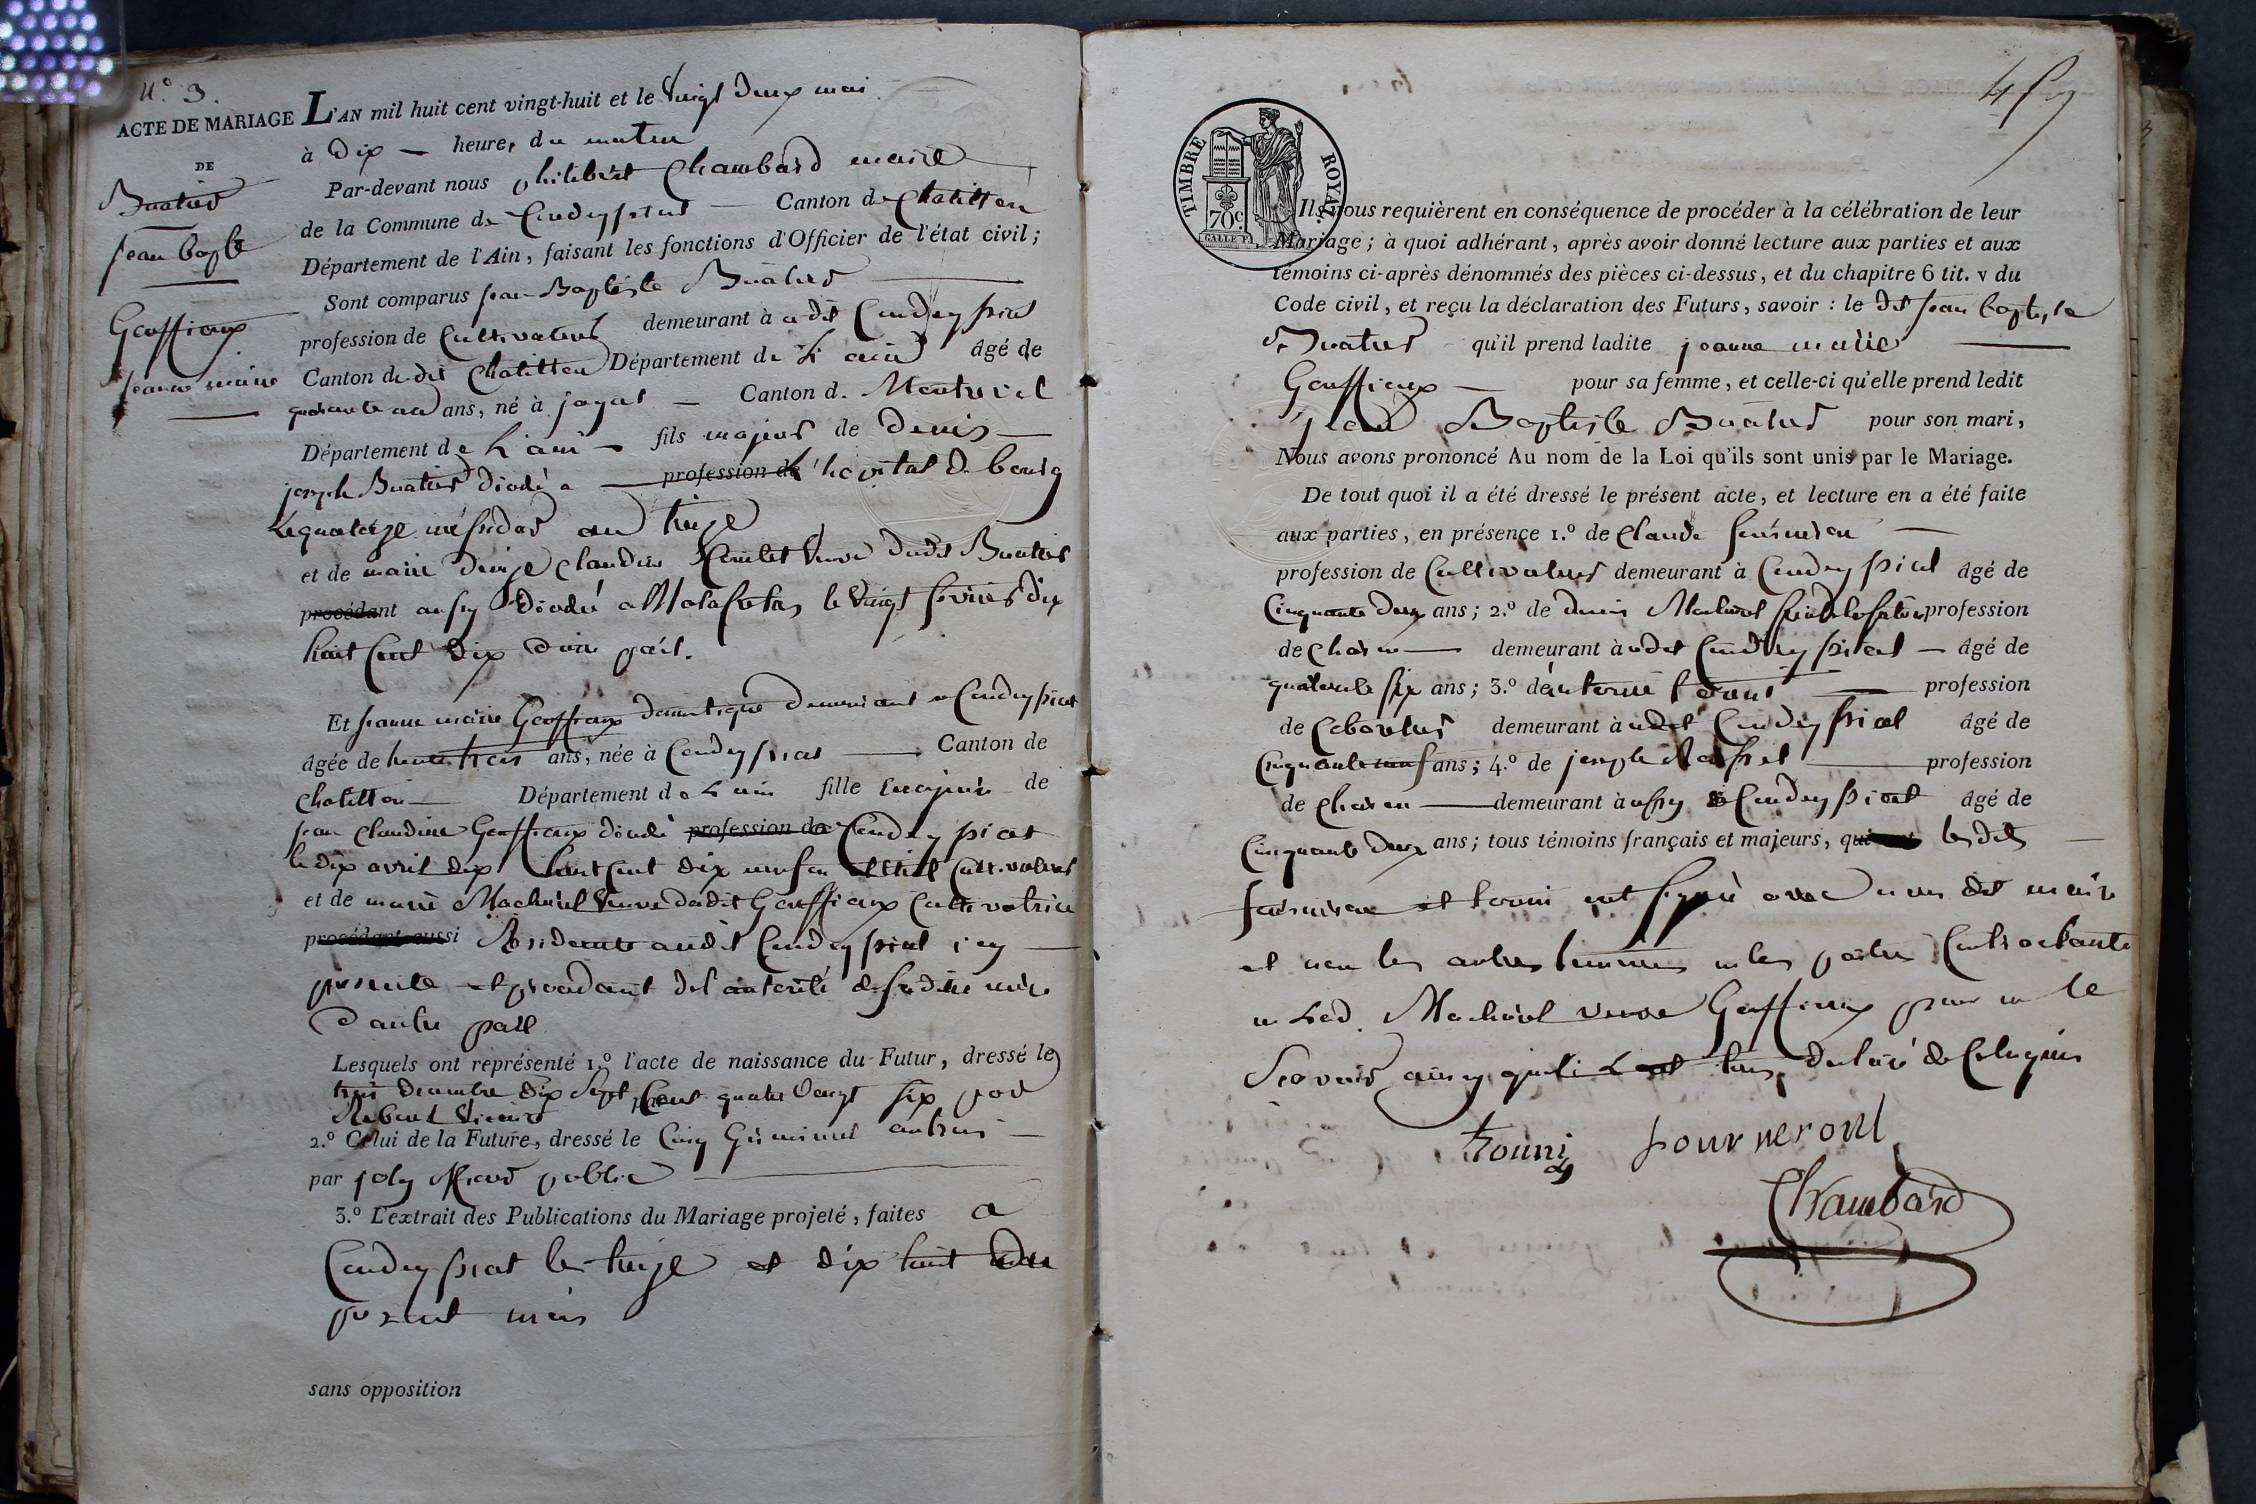 N.o 3.
ACTE DE MARIAGE
DE
Buatier
jean bapte
Geoffray
jeanne marie
L'AN mil huit cent vingt-huit et le vingt deux mai
à dix heures du matin
Par-devant nous philibert Chambard maire
de la Commune de Condeyssiat Canton de Chatillon
Département de l'Ain, faisant les fonctions d'Officier de l'état civil;
Sont comparus jean Baptiste Buatier
profession de Cultivateur demeurant à udit Condeyssiat
Canton de dit Chatillon Département de L'ain âgé de
quarante un ans, né à jayat Canton d. Montrevel
Département de L'ain fils majeur de Denis
joseph Buatier décédé a profession de l'hopital de bourg
le quatorze messidor an treize
et de marie Claudine veuve dudit Buatier
procédant aussy décédé a le vingt février dix
huit cent dix d'une part.
Et jeanne marie Geoffray domestique demeurant a Condeyssiat
âgée de trente trois ans, née à Condeyssiat Canton de
Chatillon Département de L'ain fille majeure de
jean Claudine Geoffray décédé profession de a Condeyssiat
le dix avril dix huit cent dix neuf en cultivateur
et de marie veuve dudit Geoffray Cultivatrice
procédant aussi Residente audit Condeyssiat icy
presente et procedant de l'autorité de sadite mère
d'autre part
Lesquels ont représenté 1.o l'acte de naissance du Futur, dressé le
trois decembre dix sept cent quatre vingt six par
vicaire
2.o Celui de la Future, dressé le Cinq Germinal an trois
par joly officier public
3.o L'extrait des Publications du Mariage projeté, faites a
Condeyssiat les treize et dix huit du
present mois
sans opposition
TIMBRE ROYAL
70 c.
Ils nous requièrent en conséquence de procéder à la célébration de leur
Mariage; à quoi adhérant, après avoir donné lecture aux parties et aux
témoins ci-après dénommés des pièces ci-dessus, et du chapitre 6 tit. v du
Code civil, et reçu la déclaration des Futurs, savoir : le dit jean baptiste
Buatier qu'il prend ladite jeanne marie
Geoffray pour sa femme, et celle-ci qu'elle prend ledit
jean Baptiste Buatier pour son mari,
Nous avons prononcé Au nom de la Loi qu'ils sont unis par le Mariage.
De tout quoi il a été dressé le présent acte, et lecture en a été faite
aux parties, en présence 1.o de Claude
profession de Cultivateur demeurant à Condeyssiat âgé de
Cinquante deux ans; 2.o de denis profession
de Charon demeurant à udit Condeyssiat âgé de
quarante six ans; 3.o de antoine profession
de Cabaretier demeurant à udit Condeyssiat âgé de
Cinquante neuf ans; 4.o de joseph profession
de Charon demeurant à ussy a Condeyssiat âgé de
Cinquante deux ans; tous témoins français et majeurs, qui ont lesdits
et ont signé avec nous dit maire
et non les autres témoins ni les parties Contractante
ni lad. veuve Geoffray pour ne le
savoir ainsy qu'ils l'ont tous declaré de Ce requis
pourneront
Chambard